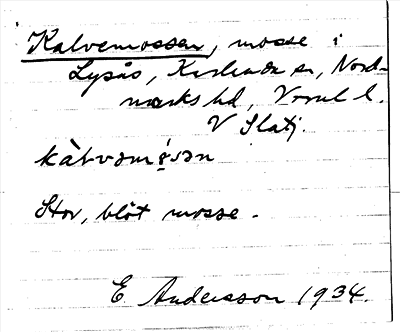 Kalvemossen, mosse i
Lysås, Karlanda sn, Nord-
marks hd, Vrml l.
V Slätj.
kàlvəmɷ́sən
Stor, blöt mosse.
E Andersson 1934.